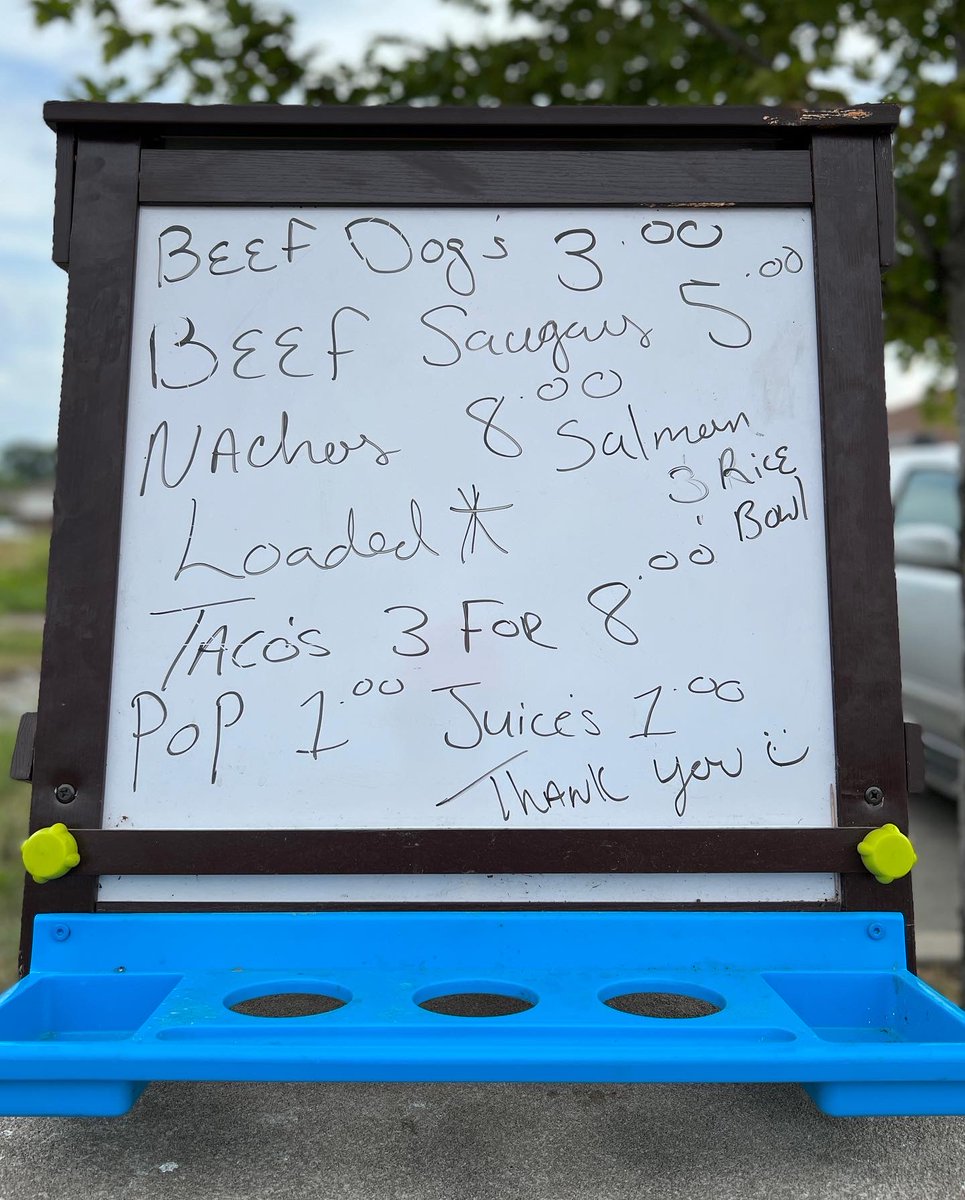 BEEF Dog's 3.00
BEEF Saugaus 5.00
NAchos 8.00
Loaded *
Salmon
3 Rice
Bowl
TACO's 3 FOR 8.00
POP 1.00 Juice's 1.00
THANK you :)